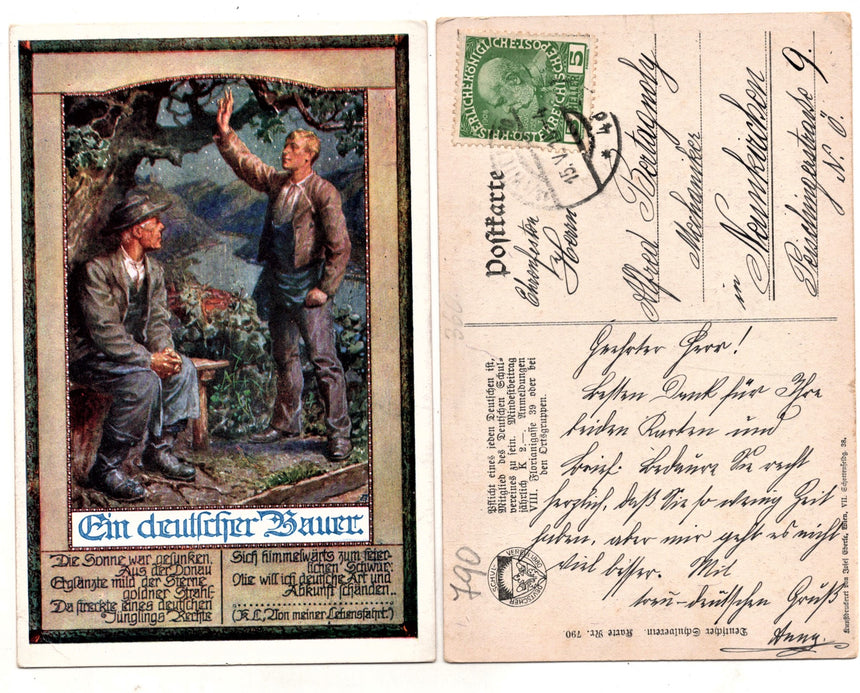 Ein deutscher Bauer.
Die Sonne war gesunken,
Aus der Donau
Erglänzte mild der Sterne
goldner Strahl:
Da streckte eines deutschen
Jünglings Rechte
Sich himmelwärts zum feier-
lichen Schwur:
Nie will ich deutsche Art und
Abkunft schänden..
(K.L., Von meiner Lebensfahrt.)
5
15.V.
Postkarte
Herrn
Alfred Bertagnoly
Mechaniker
in Neunkirchen
Peischingerstrasse 9.
N. Ö.
Pflicht eines jeden Deutschen ist,
Mitglied des Deutschen Schul-
vereines zu sein. Mindestbeitrag
jährlich K 2.—. Anmeldungen
VIII. Florianigasse 39 oder bei
den Ortsgruppen.
Geehrter Herr!
Besten Dank für Ihre
beiden Karten und
Brief. Bedaure Sie recht
herzlich, daß Sie so wenig Zeit
haben, aber mir geht es nicht
viel besser. Mit
treu-deutschen Gruß
790
Deutscher Schulverein. Karte Nr. 790
Kunstdruckerei von Josef Eberle, Wien, VII. Schottenfeldg. 38.